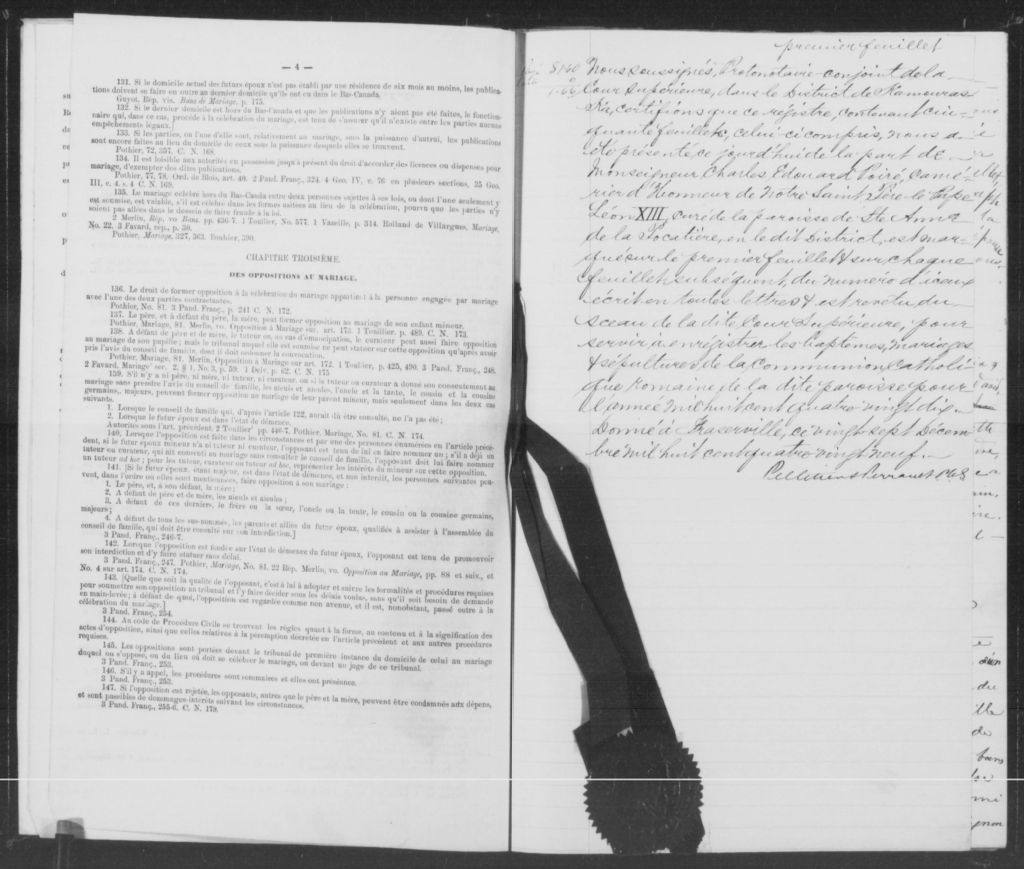 — 4 —
131. Si le domicile actuel des futurs époux n'est pas établi par une résidence de six mois au moins, les publica-
tions doivent se faire en outre au dernier domicile qu'ils ont eu dans le Bas-Canada.
Guyot, Rép. vis. Bans de Mariage, p. 175.
132. Si le dernier domicile est hors du Bas-Canada et que les publications n'y aient pas été faites, le fonction-
naire qui, dans ce cas, procède à la célébration du mariage, est tenu de s'assurer qu'il n'existe entre les parties aucuns
empêchements légaux.
133. Si les parties, ou l'une d'elle sont, relativement au mariage, sous la puissance d'autrui, les publications
sont encore faites au lieu du domicile de ceux sous la puissance desquels elles se trouvent.
Pothier, 72, 357. C. N. 168.
134. Il est loisible aux autorités en possession jusqu'à présent du droit d'accorder des licences ou dispenses pour
mariage, d'exempter des dites publications.
Pothier, 77, 78. Ord. de Blois, art. 40. 2 Pand. Franç., 324. 4 Geo. IV, c. 76 en plusieurs sections, 35 Geo.
III, c. 4. s. 4 C. N. 169.
135. Le mariage célébré hors du Bas-Canada entre deux personnes sujettes à ses lois, ou dont l'une seulement y
est soumise, est valable, s'il est célébré dans les formes usitées au lieu de la célébration, pourvu que les parties n'y
soient pas allées dans le dessein de faire fraude à la loi.
2 Merlin, Rép. vo Bans, pp. 436-7. 1 Toullier, No. 577. 1 Vazeille, p. 314. Rolland de Villargues, Mariage,
No. 22. 3 Favard, rép., p. 50.
Pothier, Mariage, 327, 363. Bouhier, 390.
CHAPITRE TROISIÈME.
DES OPPOSITIONS AU MARIAGE.
136. Le droit de former opposition à la célébration du mariage appartient à la personne engagée par mariage
avec l'une des deux parties contractantes.
Pothier, No. 81. 3 Pand. Franç., p. 241 C. N. 172.
137. Le père, et à défaut du père, la mère, peut former opposition au mariage de son enfant mineur.
Pothier, Mariage, 81. Merlin, vo. Opposition à Mariage sur. art. 173. 1 Toullier, p. 489. C. N. 173.
138. A défaut de père et de mère, le tuteur ou, au cas d'émancipation, le curateur peut aussi faire opposition
au mariage de son pupille; mais le tribunal auquel elle est soumise ne peut statuer sur cette opposition qu'après avoir
pris l'avis du conseil de famille, dont il doit ordonner la convocation.
Pothier, Mariage, 81. Merlin, Opposition à Mariage sur art. 172. 1 Toullier, p. 425, 490. 3 Pand. Franç., 248.
2 Favard, Mariage sec. 2. § 1, No. 3, p. 59. 1 Delv. p. 62. C. N. 175
139. S'il n'y a ni père, ni mère, ni tuteur, ni curateur, ou si le tuteur ou curateur a donné son consentement au
mariage sans prendre l'avis du conseil de famille, les aïeuls et aïeules, l'oncle et la tante, le cousin et la cousine
germains, majeurs, peuvent former opposition au mariage de leur parent mineur, mais seulement dans les deux cas
suivants.
1. Lorsque le conseil de famille qui, d'après l'article 122, aurait dû être consulté, ne l'a pas été;
2. Lorsque le futur époux est dans l'état de démence.
Autorités sous l'art. précédent. 2 Toullier pp. 446-7. Pothier, Mariage, No. 81. C. N. 174.
140. Lorsque l'opposition est faite dans les circonstances et par une des personnes énumérées en l'article précé-
dent, si le futur époux mineur n'a ni tuteur ni curateur, l'opposant est tenu de lui en faire nommer un; s'il a déjà un
tuteur ou curateur, qui ait consenti au mariage sans consulter le conseil de famille, l'opposant doit lui faire nommer
un tuteur ad hoc; pour les tuteur, curateur ou tuteur ad hoc, représenter les intérêts du mineur sur cette opposition.
141. [Si le futur époux, étant majeur, est dans l'état de démence, et non interdit, les personnes suivantes peu-
vent, dans l'ordre ou elles sont mentionnées, faire opposition à son mariage:
1. Le père, et, à son défaut, la mère;
2. A défaut de père et de mère, les aïeuls et aïeules;
3. A défaut de ces derniers, le frère ou la sœur, l'oncle ou la tante, le cousin ou la cousine germains,
majeurs;
4. A défaut de tous les sus-nommés, les parents et alliés du futur époux, qualifiés à assister à l'assemblée du
conseil de famille, qui doit être consulté sur son interdiction.]
3 Pand. Franç., 246-7.
142. Lorsque l'opposition est fondée sur l'état de démence du futur époux, l'opposant est tenu de promouvoir
son interdiction et d'y faire statuer sans délai.
3 Pand. Franç., 247. Pothier, Mariage, No. 81. 22 Rép. Merlin, vo. Opposition au Mariage, pp. 88 et suiv., et
No. 4 sur art. 174. C. N. 174.
143. [Quelle que soit la qualité de l'opposant, c'est à lui à adopter et suivre les formalités et procédures requises
pour soumettre son opposition au tribunal et l'y faire décider sous les délais voulus, sans qu'il soit besoin de demande
en main-levée; à défaut de quoi, l'opposition est regardée comme non avenue, et il est, nonobstant, passé outre à la
célébration du mariage.]
3 Pand. Franç., 254.
144. Au code de Procédure Civile se trouvent les règles quant à la forme, au contenu et à la signification des
actes d'opposition, ainsi que celles relatives à la péremption décrétée en l'article précédent et aux autres procédures
requises.
145. Les oppositions sont portées devant le tribunal de première instance du domicile de celui au mariage
duquel on s'oppose, ou du lieu où doit se célébrer le mariage, ou devant un juge de ce tribunal.
3 Pand. Franç., 253.
146. S'il y a appel, les procédures sont sommaires et elles ont préséance.
3 Pand. Franç., 253.
147. Si l'opposition est rejetée, les opposants, autres que le père et la mère, peuvent être condamnés aux dépens,
et sont passibles de dommages-intérêts suivant les circonstances.
3 Pand. Franç., 255-6. C. N. 179.
premier feuillet
Nous soussignés, Protonotaire-conjoint de la
Cour Supérieure, dans le District de Kamouras-
ka, certifions que ce régistre, contenant cin-
quante feuillets, celui-ci compris, nous a
été présenté, ce jourd'hui de la part de
Monseigneur Charles Edouard Poiré, camé-
rier d'Honneur de Notre Saint Père le Pape
Léon XIII, curé de la paroisse de Ste Anne
de la Pocatière, en le dit District, est mar-
qué sur le premier feuillet & sur chaque
feuillet subséquent, du numéro d'iceux
écrit en toutes lettres & est revêtu du
sceau de la dite Cour Supérieure, pour
servir à enregistrer les baptêmes, mariages
& sépultures de la Communion Catholi-
que Romaine de la dite paroisse pour
l'année mil huit cent quatre vingt dix.
Donné à Fraserville, ce vingt sept Décem-
bre mil huit cent quatre vingt neuf.
Pelletier & Perrault P.C.S.